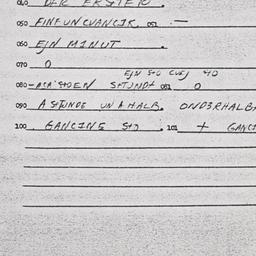 040 DER ERSTER
050 FINFUNCVANCIK. 051 . —
060 EJN MINUT .
070 0
EJN STO CVEJ 40
080 - ACA STOEN STUNDE 081 0
090 A STUNDE UN A HALB. ONDERHALB
100 GANCINE STO . 101 + GANC